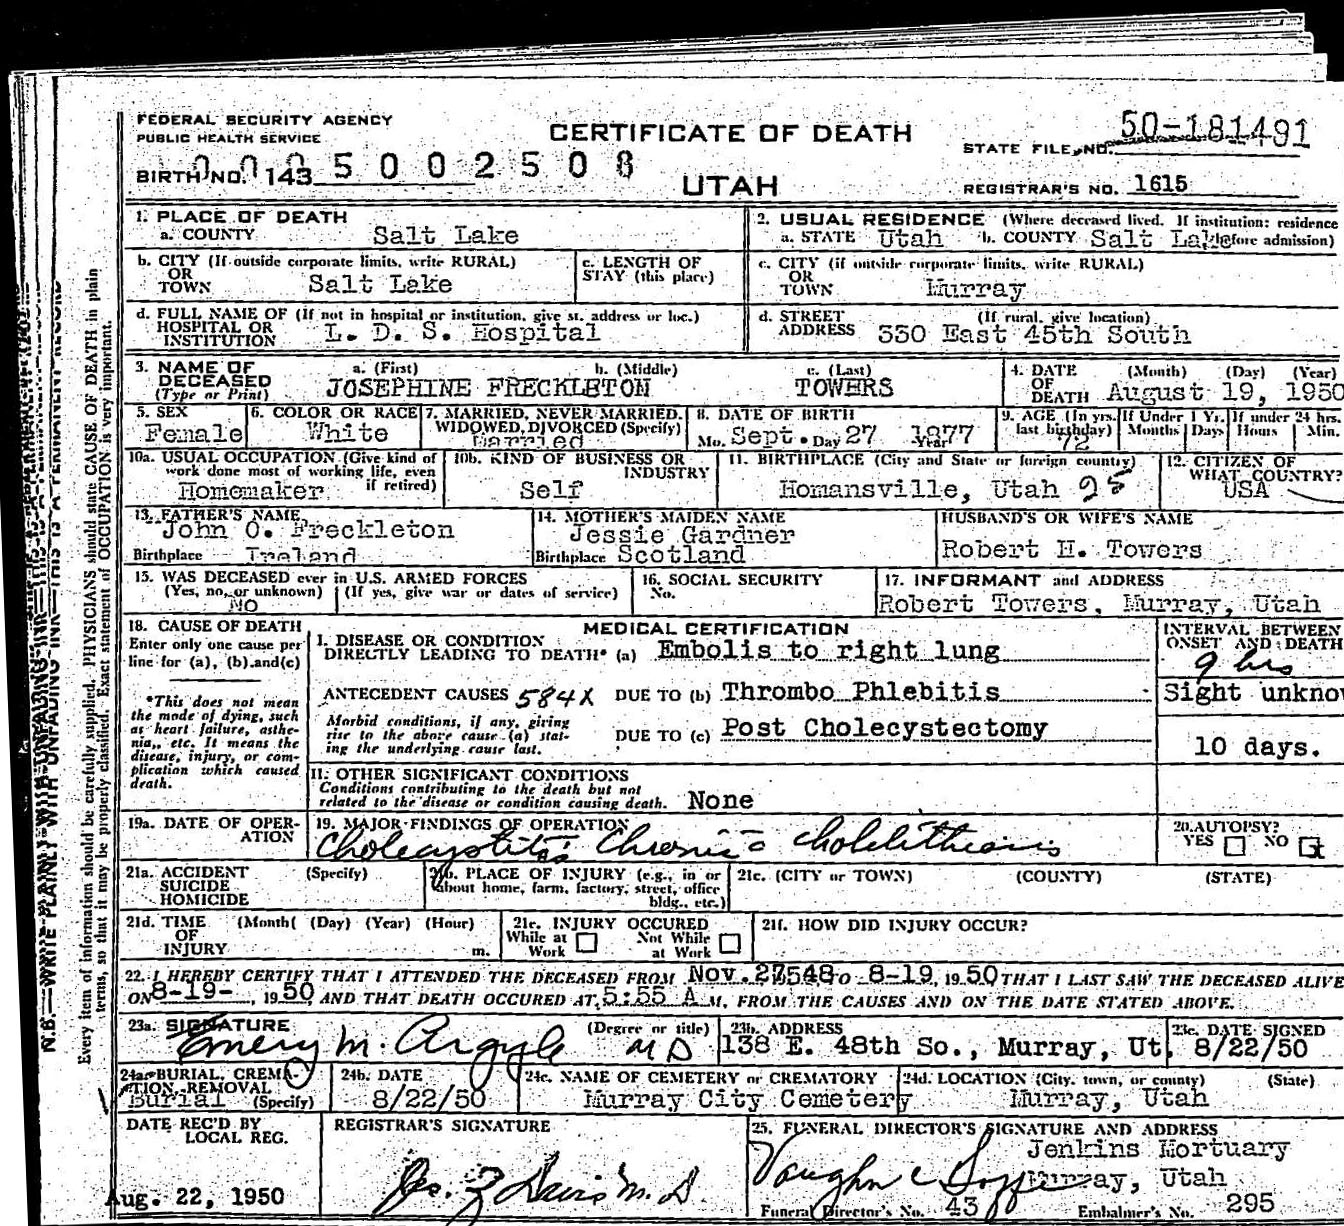 FEDERAL SECURITY AGENCY
PUBLIC HEALTH SERVICE
CERTIFICATE OF DEATH
STATE FILE NO. 50-181491
BIRTH NO. 143 5 0 0 2 5 0 8
UTAH
REGISTRAR'S NO. 1615
1. PLACE OF DEATH
a. COUNTY Salt Lake
2. USUAL RESIDENCE (Where deceased lived. If institution: residence before admission)
a. STATE Utah b. COUNTY Salt Lake
b. CITY (If outside corporate limits, write RURAL)
OR
TOWN Salt Lake
c. LENGTH OF
STAY (this place)
c. CITY (if outside corporate limits, write RURAL)
OR
TOWN Murray
d. FULL NAME OF (If not in hospital or institution, give st. address or loc.)
HOSPITAL OR
INSTITUTION L. D. S. Hospital
d. STREET (If rural, give location)
ADDRESS 330 East 45th South
3. NAME OF a. (First) b. (Middle) c. (Last)
DECEASED
(Type or Print) JOSEPHINE FRECKLETON TOWERS
4. DATE (Month) (Day) (Year)
OF
DEATH August 19, 1950
5. SEX
Female
6. COLOR OR RACE
White
7. MARRIED, NEVER MARRIED,
WIDOWED, DIVORCED (Specify)
Married
8. DATE OF BIRTH
Mo. Sept. Day 27 Year 1877
9. AGE (In yrs. last birthday) 72
If Under 1 Yr. Months Days
If under 24 hrs. Hours Min.
10a. USUAL OCCUPATION (Give kind of
work done most of working life, even
if retired)
Homemaker
10b. KIND OF BUSINESS OR
INDUSTRY
Self
11. BIRTHPLACE (City and State or foreign country)
Homansville, Utah 25
12. CITIZEN OF
WHAT COUNTRY?
USA
13. FATHER'S NAME
John O. Freckleton
Birthplace Ireland
14. MOTHER'S MAIDEN NAME
Jessie Gardner
Birthplace Scotland
HUSBAND'S OR WIFE'S NAME
Robert H. Towers
15. WAS DECEASED ever in U.S. ARMED FORCES
(Yes, no, or unknown) (If yes, give war or dates of service)
NO
16. SOCIAL SECURITY
No.
17. INFORMANT and ADDRESS
Robert Towers, Murray, Utah
18. CAUSE OF DEATH
Enter only one cause per
line for (a), (b) and (c)
*This does not mean
the mode of dying, such
as heart failure, asthe-
nia, etc. It means the
disease, injury, or com-
plication which caused
death.
MEDICAL CERTIFICATION
INTERVAL BETWEEN
ONSET AND DEATH
I. DISEASE OR CONDITION
DIRECTLY LEADING TO DEATH* (a) Embolis to right lung 9 hrs
ANTECEDENT CAUSES 584X DUE TO (b) Thrombo Phlebitis Sight unkno
Morbid conditions, if any, giving
rise to the above cause (a) stat-
ing the underlying cause last.
DUE TO (c) Post Cholecystectomy 10 days.
II. OTHER SIGNIFICANT CONDITIONS
Conditions contributing to the death but not
related to the disease or condition causing death. None
19a. DATE OF OPER-
ATION
19. MAJOR FINDINGS OF OPERATION
Cholecystitis Chronic c Cholelithiasis
20. AUTOPSY?
YES NO X
21a. ACCIDENT (Specify)
SUICIDE
HOMICIDE
21b. PLACE OF INJURY (e.g., in or
about home, farm, factory, street, office
bldg., etc.)
21c. (CITY or TOWN) (COUNTY) (STATE)
21d. TIME (Month) (Day) (Year) (Hour)
OF
INJURY m.
21e. INJURY OCCURED
While at Work Not While at Work
21f. HOW DID INJURY OCCUR?
22. I HEREBY CERTIFY THAT I ATTENDED THE DECEASED FROM Nov. 27, 48 TO 8-19, 1950 THAT I LAST SAW THE DECEASED ALIVE
ON 8-19-, 1950, AND THAT DEATH OCCURED AT 5:55 A M, FROM THE CAUSES AND ON THE DATE STATED ABOVE.
23a. SIGNATURE (Degree or title)
Emery M. Argyle M D
23b. ADDRESS
138 E. 48th So., Murray, Ut.
23c. DATE SIGNED
8/22/50
24a. BURIAL, CREMA-
TION, REMOVAL
Burial (Specify)
24b. DATE
8/22/50
24c. NAME OF CEMETERY or CREMATORY
Murray City Cemetery
24d. LOCATION (City, town, or county) (State)
Murray, Utah
DATE REC'D BY
LOCAL REG.
Aug. 22, 1950
REGISTRAR'S SIGNATURE
Davis M. D.
25. FUNERAL DIRECTOR'S SIGNATURE AND ADDRESS
Jenkins Mortuary
Vaughn C Murray, Utah
Funeral Director's No. 43 Embalmer's No. 295
N.B.—WRITE PLAINLY WITH UNFADING INK—THIS IS A PERMANENT RECORD
Every item of information should be carefully supplied. PHYSICIANS should state CAUSE OF DEATH in plain
terms, so that it may be properly classified. Exact statement of OCCUPATION is very important.